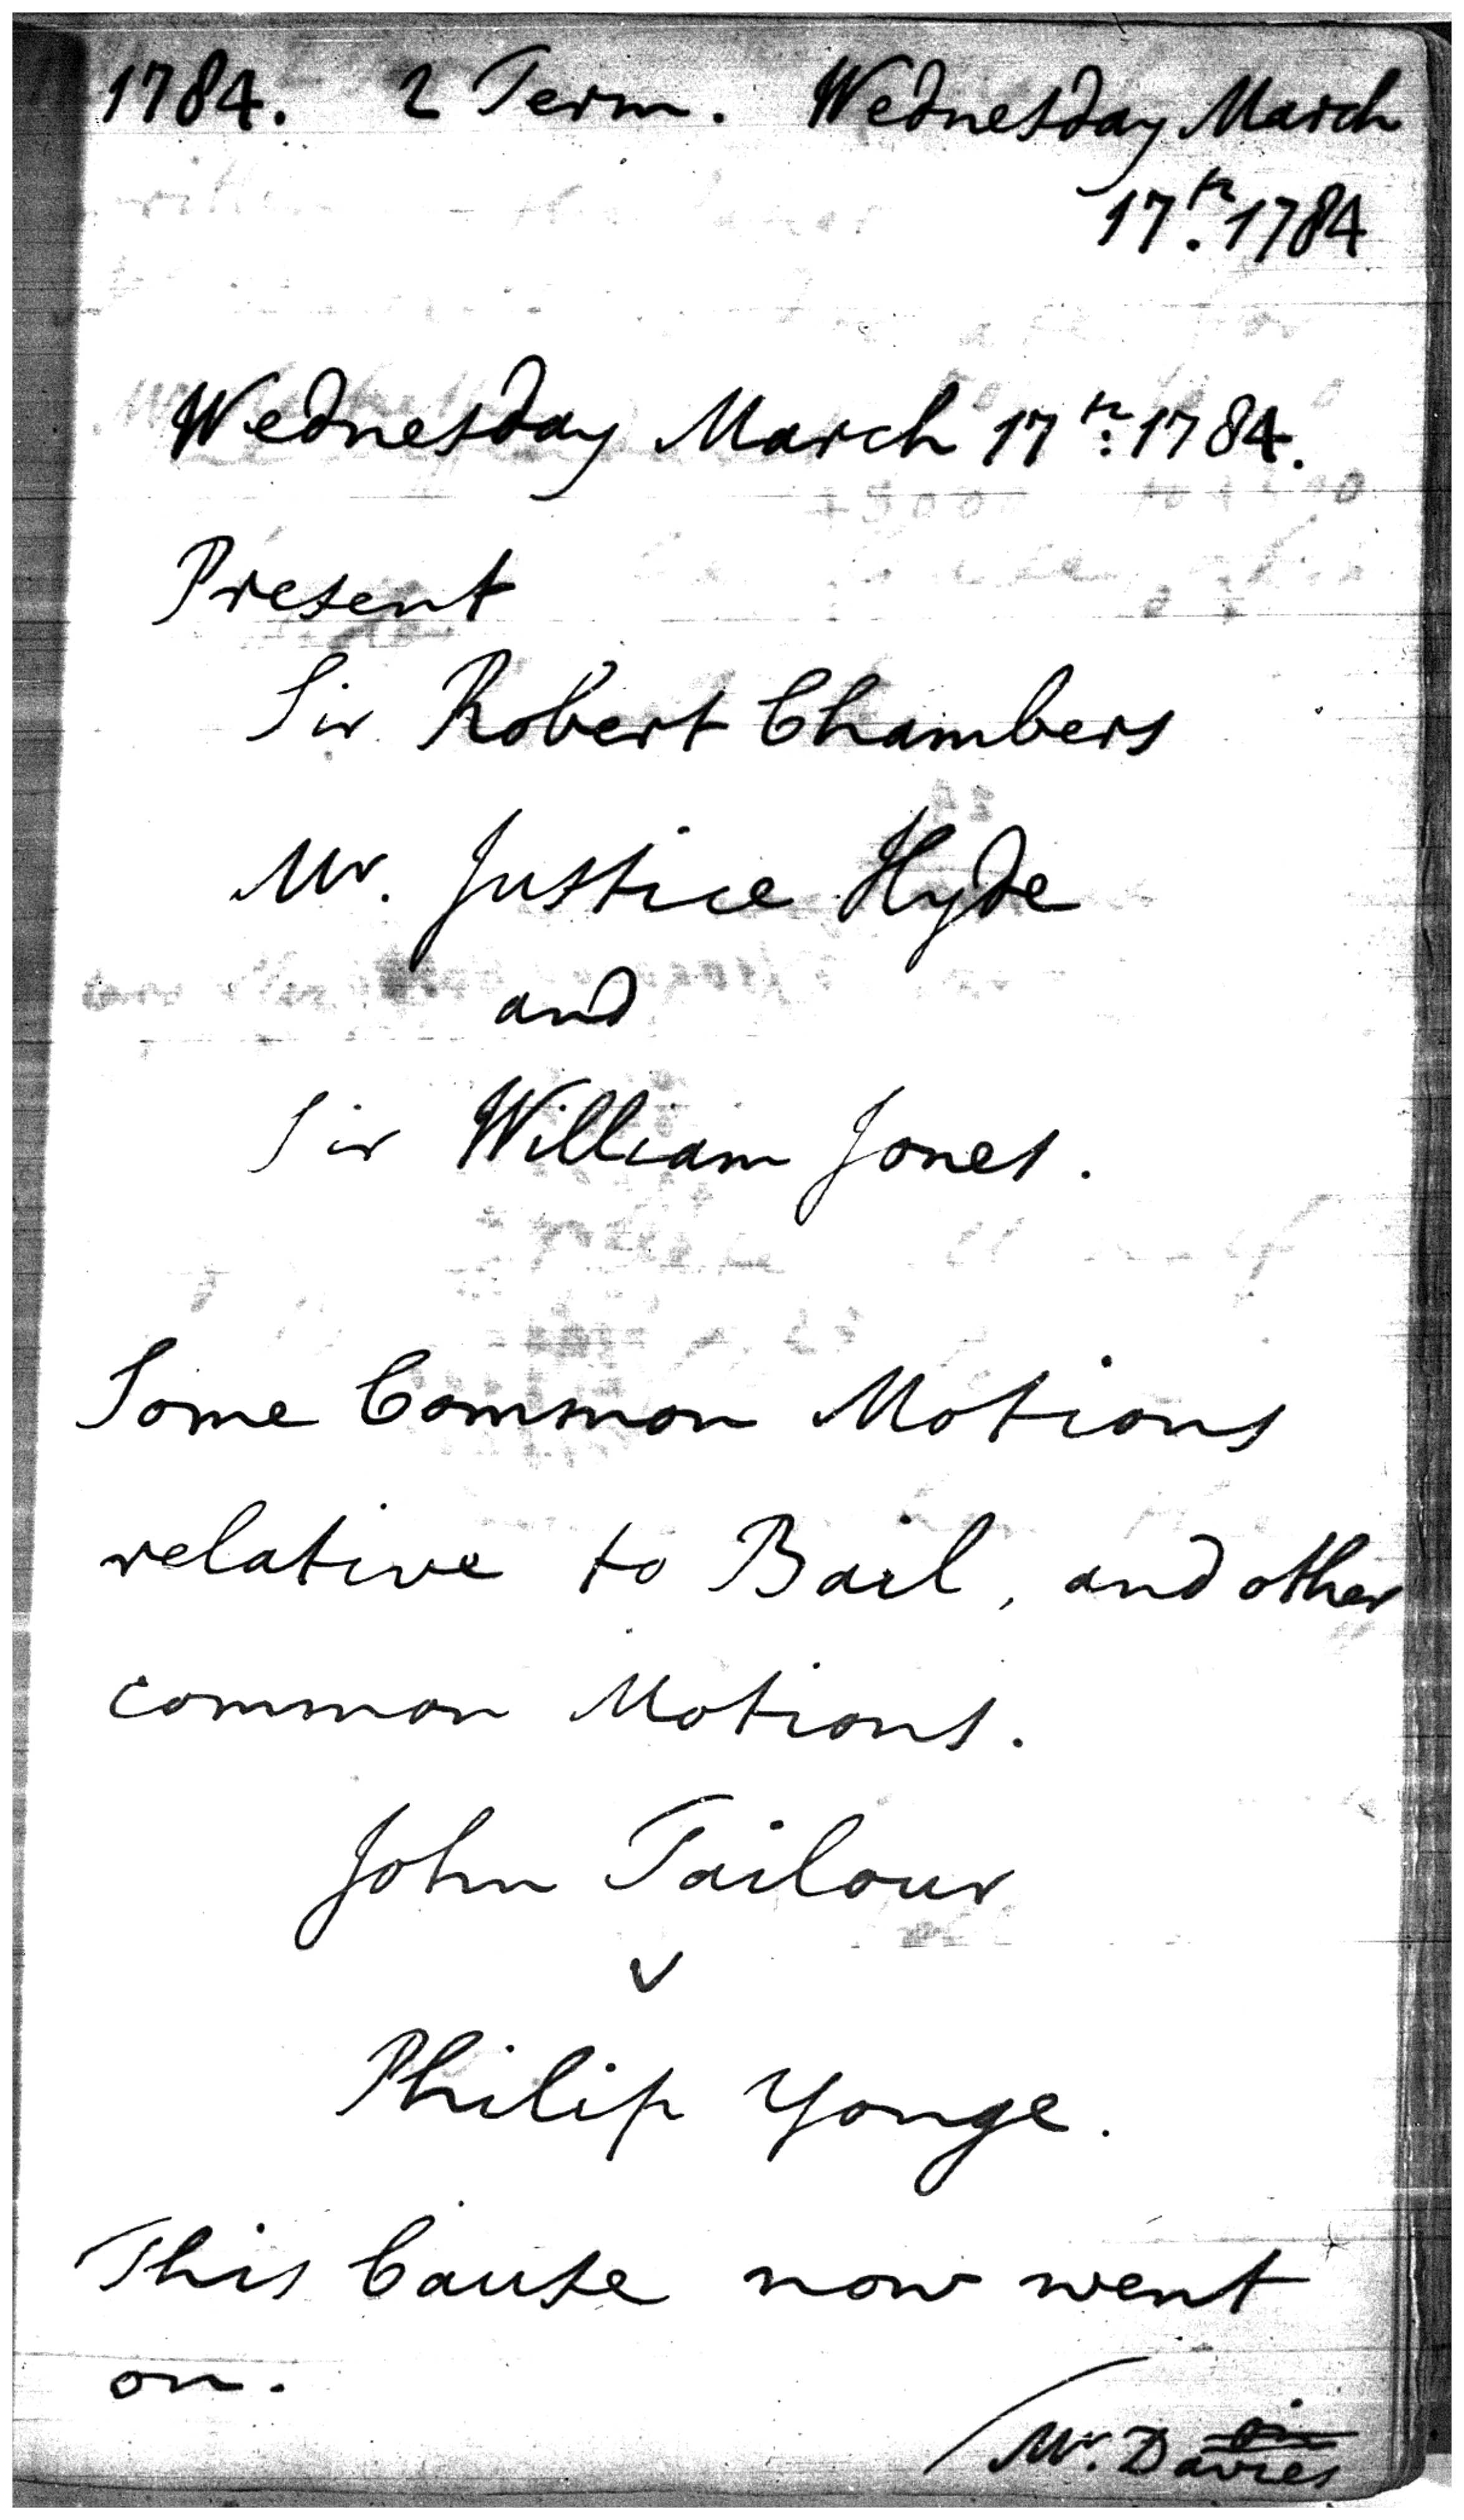 1784. 2 Term. Wednesday March
17th. 1784
Wednesday March 17th. 1784.
Present
Sir Robert Chambers
Mr. Justice Hyde
and
Sir William Jones.
Some Common Motions
relative to Bail, and other
common Motions.
John Tailour
v
Philip Yonge.
This Cause now went
on.
Mr. Davies